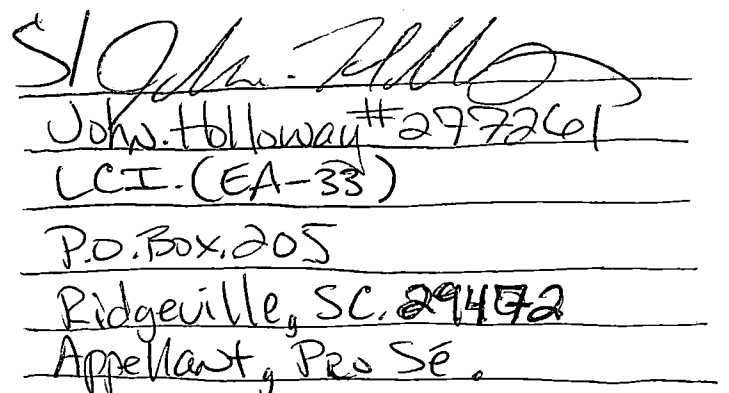 S/ John. Holloway
John. Holloway #277261
LCI. (EA-33)
P.O. Box. 205
Ridgeville, SC. 29472
Appellant, Pro Sé.